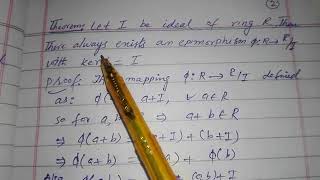 (2)
Theorem: Let I be ideal of ring R. Then
there always exists an epimorphism φ: R → R/I
with ker = I
Proof: The mapping φ: R → R/I defined
as: φ( a+I, ∀ a∈R
so for a, ⇒ a+b ∈ R
⇒ φ(a+b) = +I) + (b+I)
⇒ φ(a+b) = ) + φ(b)